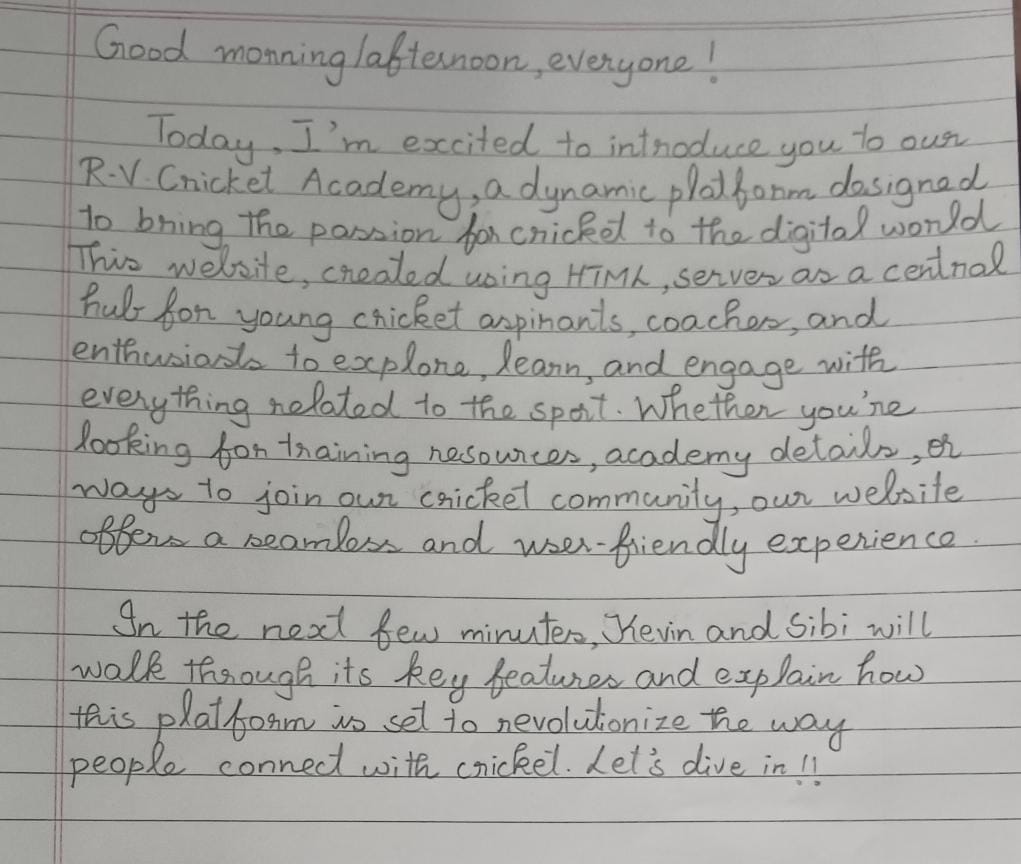 Good morning/afternoon, everyone!
Today, I'm excited to introduce you to our
R.V. Cricket Academy, a dynamic platform dasigned
to bring the passion for cricket to the digital world
This website, created using HTML, serves as a central
hub for young cricket aspirants, coaches, and
enthusiasts to explore, learn, and engage with
everything related to the sport. Whether you're
looking for training resources, academy details, or
ways to join our cricket community, our website
offers a seamless and user-friendly experience.
In the next few minutes, Kevin and Sibi will
walk through its key features and explain how
this platform is set to revolutionize the way
people connect with cricket. Let's dive in!!